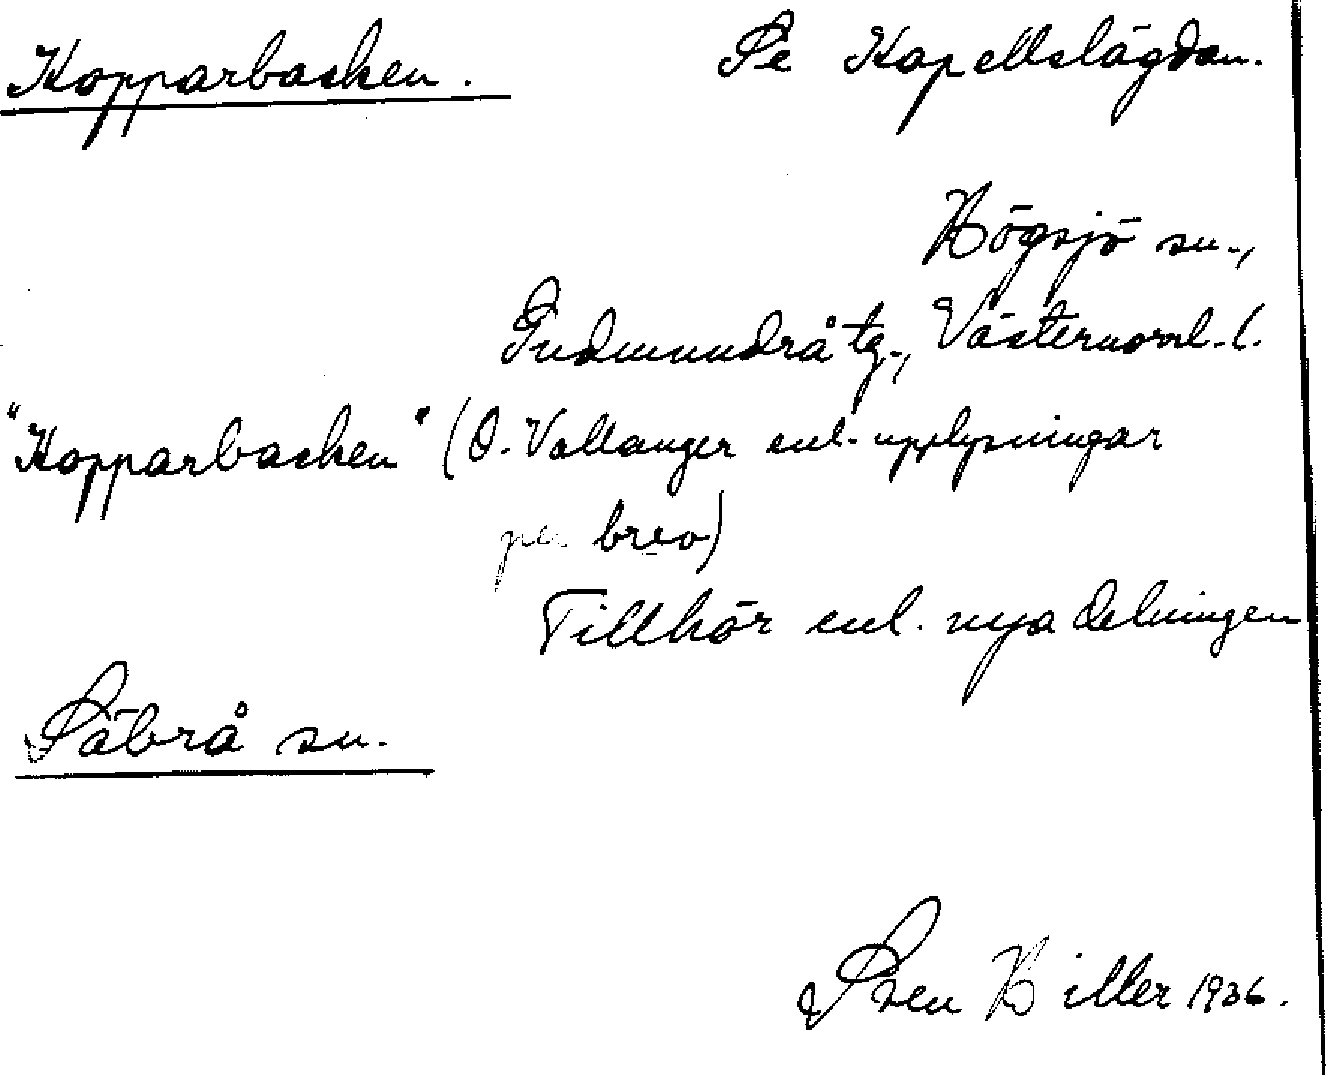 Kopparbacken. Se Kapellslägdan.
Högsjö sn.,
Gudmundrå tg., Västernorrl. l.
"Kopparbacken" (O. Vallanger enl. upplysningar
per brev)
Tillhör enl. nya delningen
Säbrå sn.
Sven Hiller 1936.